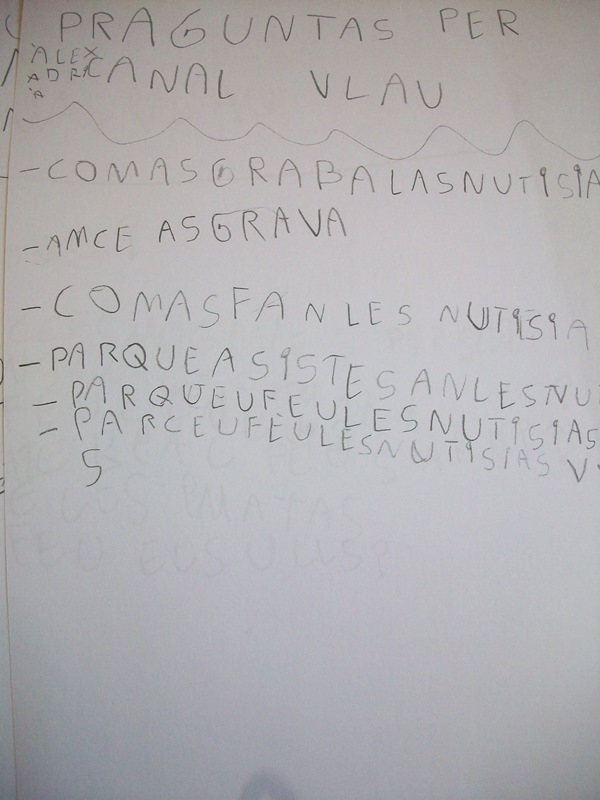 PRAGUNTAS PER
ALEX
ADRIÀ
CANAL VLAU
-COMASGRABALASNUTISIA
-AMCE ASGRAVA
-COMASFAN LES NUTISIA
-PARQUEASISTESANLESNU
-PARQUEUFEULESNUTISIAS
-PARCEUFEULESNUTISIAS V
S